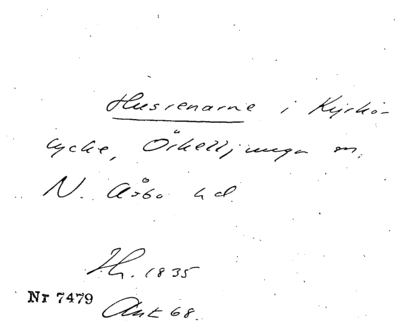 Husrenarne i Kyrko-
lycke, Örkelljunga sn,
N. Åsbo hd.
Hr. 1835
Nr 7479
Ant 68.